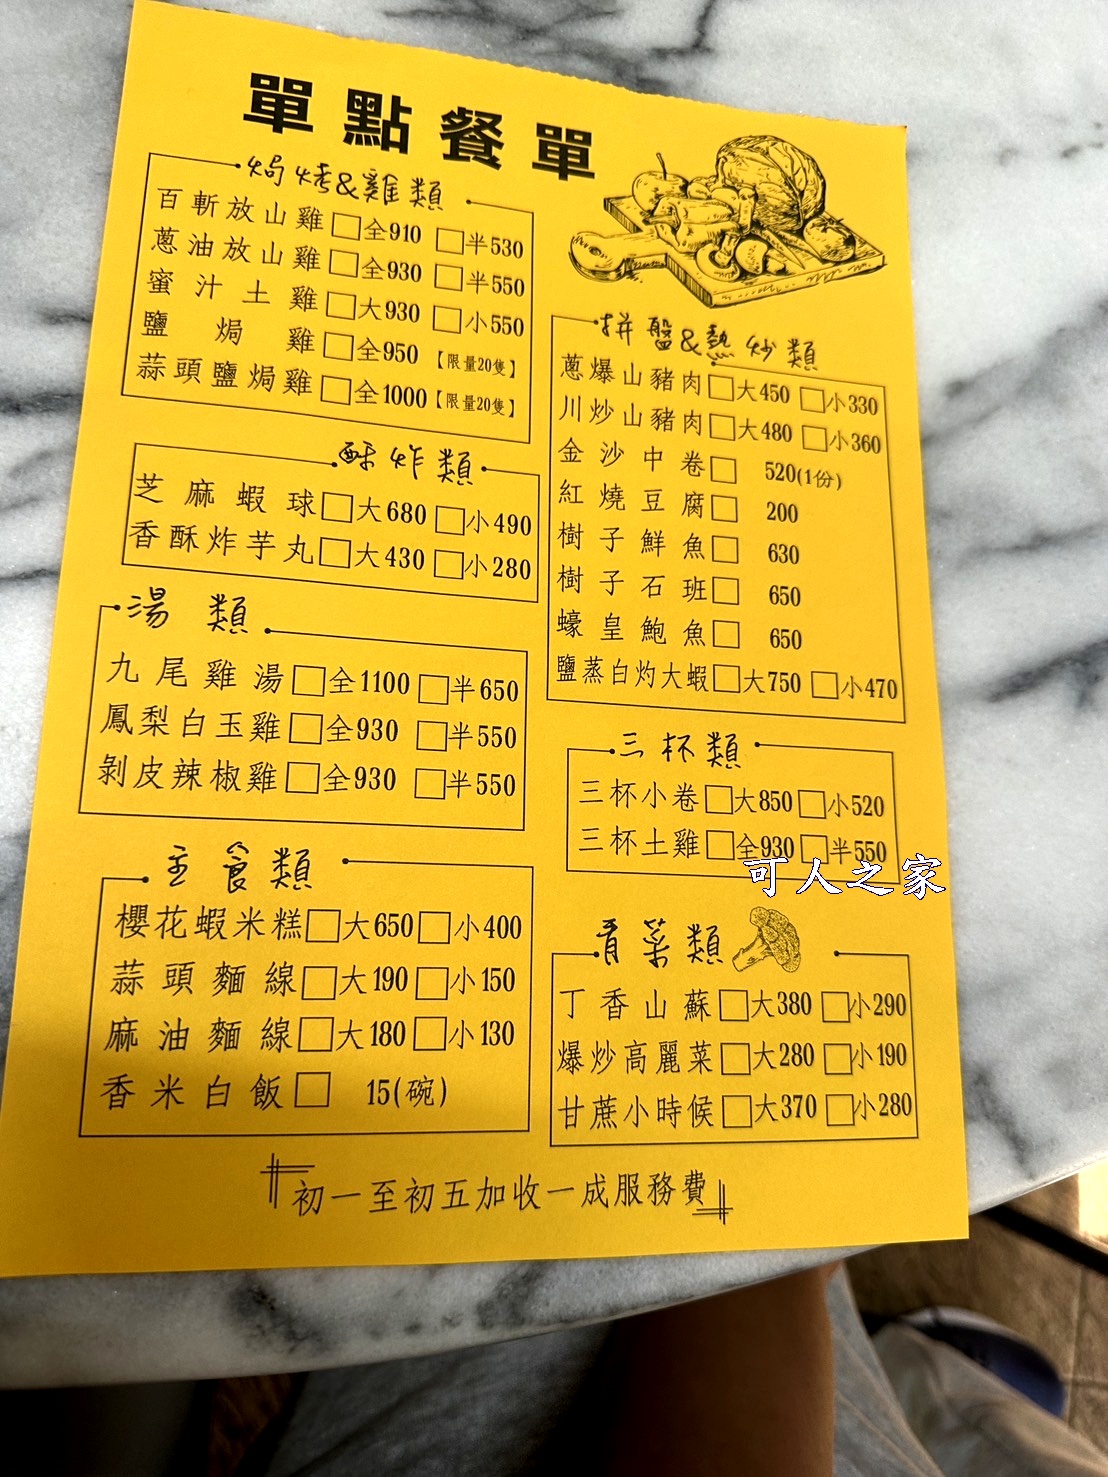 單點餐單
焗烤&雞類
百斬放山雞□全910 □半530
蔥油放山雞□全930 □半550
蜜汁土雞□大930 □小550
鹽焗雞□全950【限量20隻】
蒜頭鹽焗雞□全1000【限量20隻】
酥炸類
芝麻蝦球□大680 □小490
香酥炸芋丸□大430 □小280
湯類
九尾雞湯□全1100 □半650
鳳梨白玉雞□全930 □半550
剝皮辣椒雞□全930 □半550
主食類
櫻花蝦米糕□大650 □小400
蒜頭麵線□大190 □小150
麻油麵線□大180 □小130
香米白飯□ 15(碗)
拼盤&熱炒類
蔥爆山豬肉□大450 □小330
川炒山豬肉□大480 □小360
金沙中卷□ 520(1份)
紅燒豆腐□ 200
樹子鮮魚□ 630
樹子石班□ 650
蠔皇鮑魚□ 650
鹽蒸白灼大蝦□大750 □小470
三杯類
三杯小卷□大850 □小520
三杯土雞□全930 □半550
可人之家
青菜類
丁香山蘇□大380 □小290
爆炒高麗菜□大280 □小190
甘蔗小時候□大370 □小280
初一至初五加收一成服務費